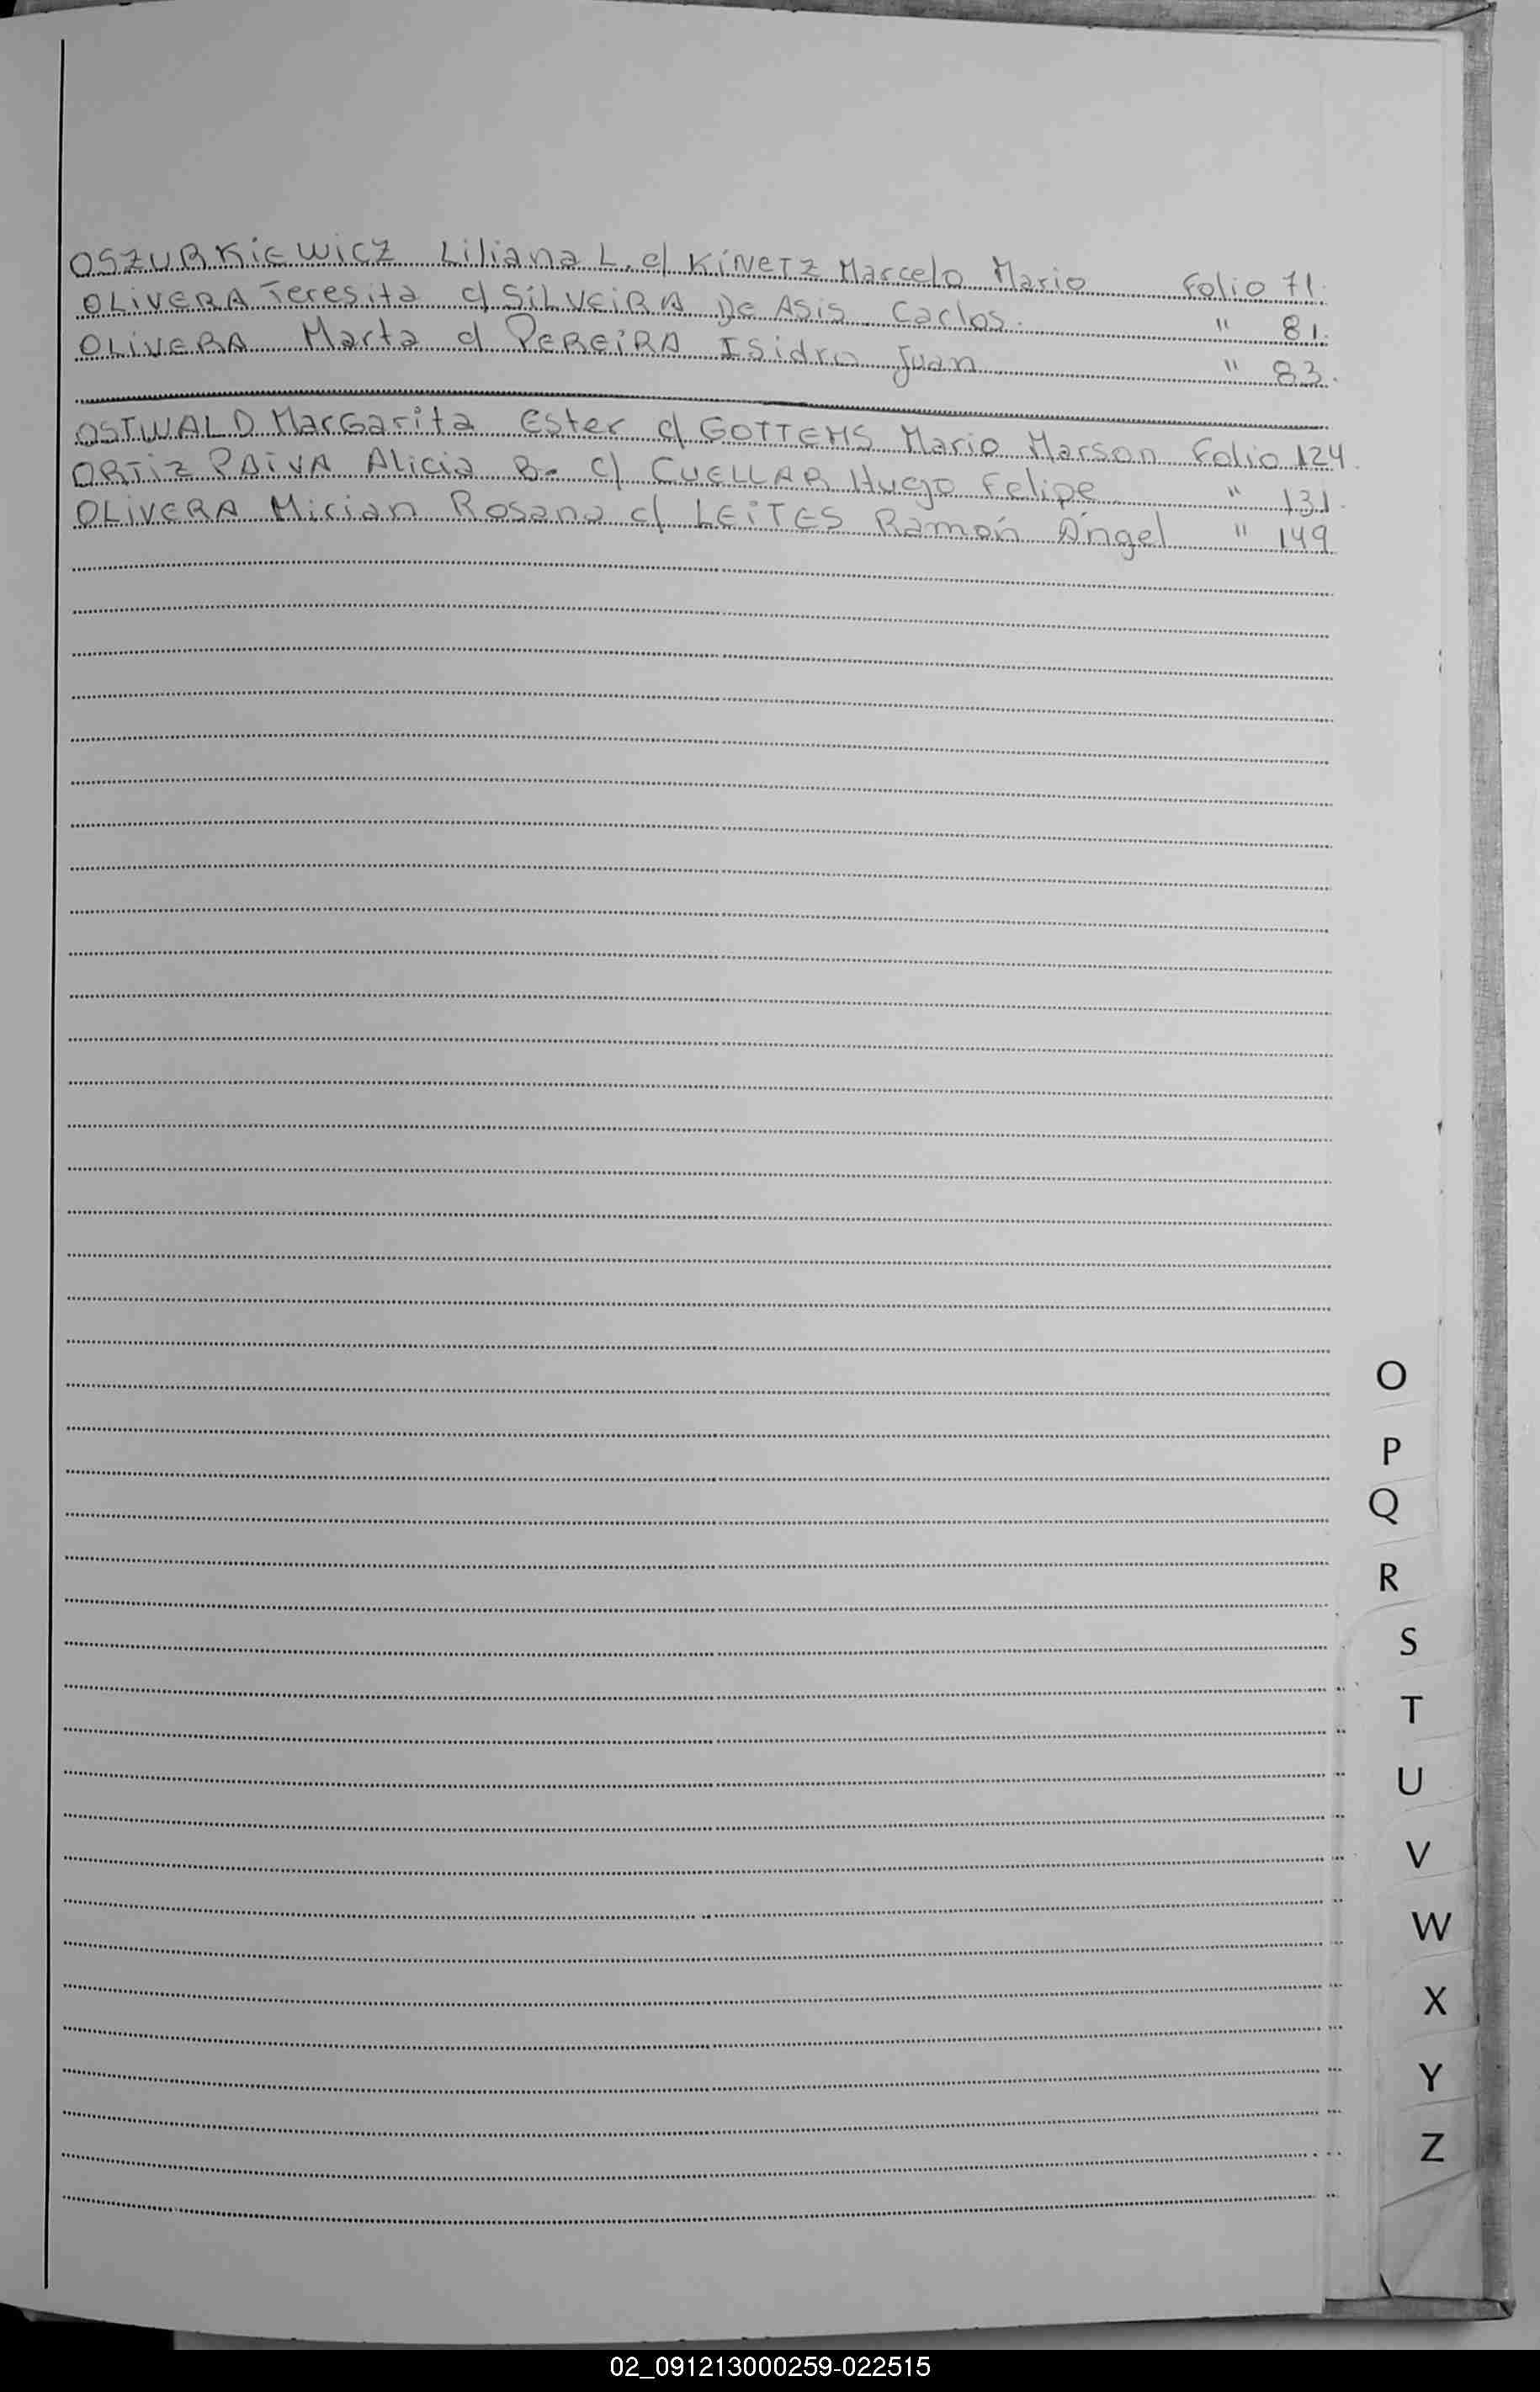 OSZURKIEWICZ Liliana L. c/ KINETZ Marcelo Mario Folio 71.
OLIVERA Teresita c/ SILVEIRA De Asis Carlos. " 81.
OLIVERA Marta c/ PEREIRA Isidro Juan " 83.
OSTWALD Margarita Ester c/ GOTTEMS Mario Marson Folio 124.
ORTIZ PAIVA Alicia B. c/ CUELLAR Hugo Felipe " 131.
OLIVERA Mirian Rosana c/ LEITES Ramón Ángel " 149
O
P
Q
R
S
T
U
V
W
X
Y
Z
02_091213000259-022515